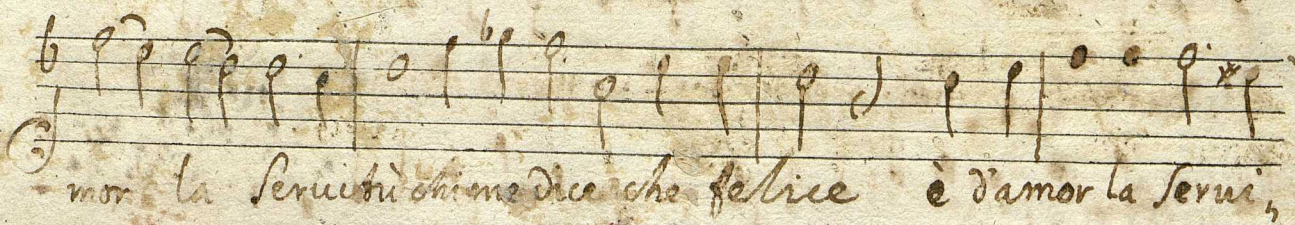 mor la Servitù chi me dice che felice è d'amor la Servi,,